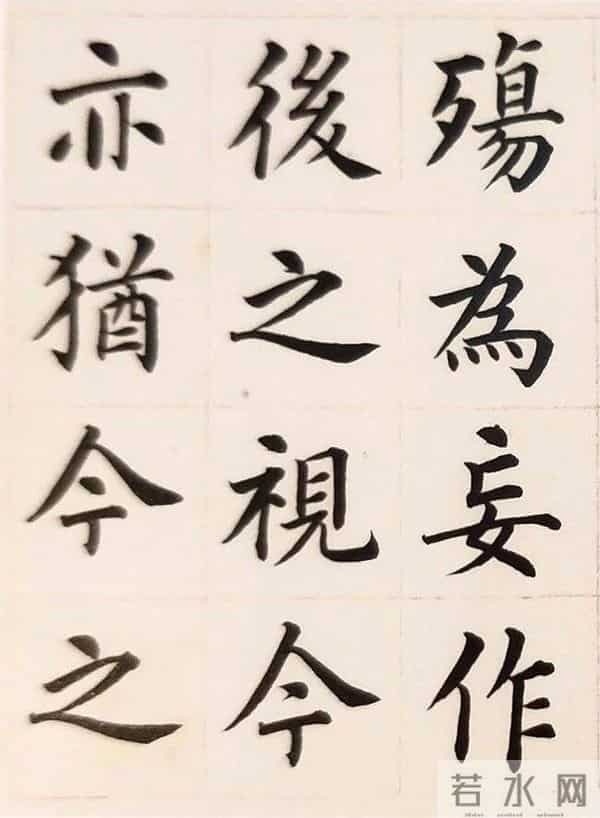 殤為妄作
後之視今
亦猶今之
若水网